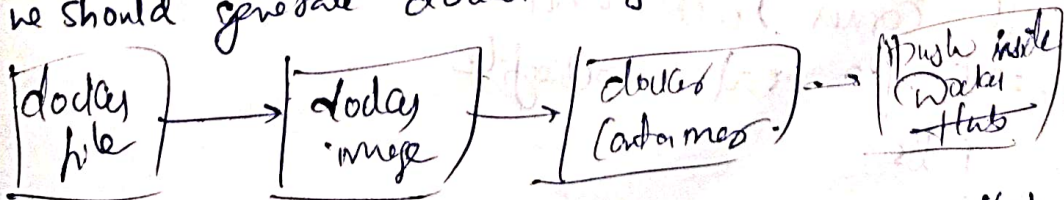 we should generate
docker file
docker image
docker container.
push inside Docker Hub